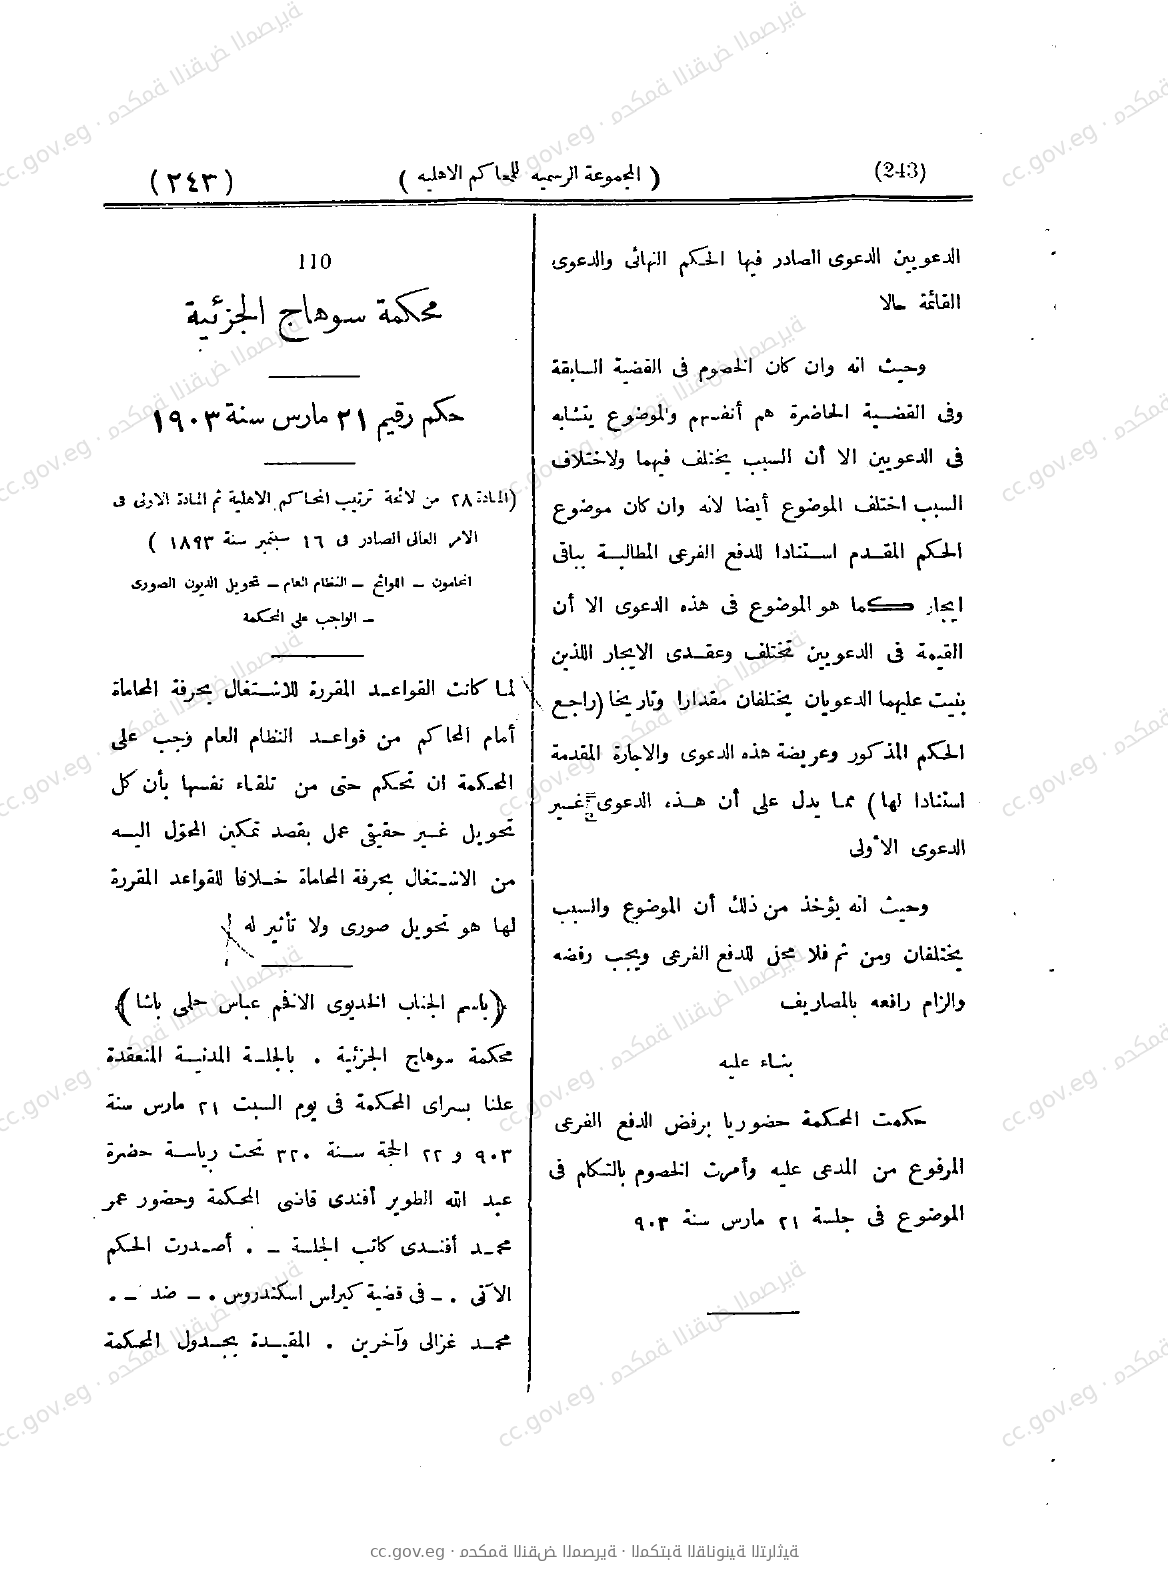 (243) ( المجموعة الرسميه للمحاكم الاهليه ) (٢٤٣)
الدعويين الدعوى الصادر فيها الحكم النهائى والدعوى
القائمة حالا
وحيث انه وان كان الخصوم فى القضية السابقة
وفى القضية الحاضرة هم أنفسهم والموضوع يتشابه
فى الدعويين الا أن السبب يختلف فيهما ولاختلاف
السبب اختلف الموضوع أيضا لانه وان كان موضوع
الحكم المقدم استنادا للدفع الفرعى المطالبة بباقى
ايجار كما هو الموضوع فى هذه الدعوى الا أن
القيمة فى الدعويين تختلف وعقدى الايجار اللذين
بنيت عليهما الدعويان يختلفان مقدارا وتاريخا (راجع
الحكم المذكور وعريضة هذه الدعوى والاجارة المقدمة
استنادا لها) مما يدل على أن هذه الدعوى غير
الدعوى الأولى
وحيث انه يؤخذ من ذلك أن الموضوع والسبب
يختلفان ومن ثم فلا محل للدفع الفرعى ويجب رفضه
والزام رافعه بالمصاريف
بناء عليه
حكمت المحكمة حضوريا برفض الدفع الفرعى
المرفوع من المدعى عليه وأمرت الخصوم بالتكلم فى
الموضوع فى جلسة ٢١ مارس سنة ٩٠٣
110
محكمة سوهاج الجزئية
حكم رقيم ٢١ مارس سنة ١٩٠٣
(المادة ٢٨ من لائحة ترتيب المحاكم الاهلية ثم المادة الاولى فى
الامر العالى الصادر فى ١٦ سبتمبر سنة ١٨٩٣ )
المحامون – اللوائح – النظام العام – تحويل الديون الصورى
– الواجب على المحكمة
لما كانت القواعد المقررة للاشتغال بحرفة المحاماة
أمام المحاكم من قواعد النظام العام وجب على
المحكمة ان تحكم حتى من تلقاء نفسها بأن كل
تحويل غير حقيقى عمل بقصد تمكين المحوّل اليه
من الاشتغال بحرفة المحاماة خلافا للقواعد المقررة
لها هو تحويل صورى ولا تأثير له
(باسم الجناب الخديوى الافخم عباس حلمى باشا)
محكمة سوهاج الجزئية . بالجلسة المدنية المنعقدة
علنا بسراى المحكمة فى يوم السبت ٢١ مارس سنة
٩٠٣ و ٢٢ الحجة سنة ٣٢٠ تحت رياسة حضرة
عبد الله الطوير أفندى قاضى المحكمة وحضور عمر
محمد أفندى كاتب الجلسة – . أصدرت الحكم
الآتى . – فى قضية كيراس اسكندروس . – ضد – .
محمد غزالى وآخرين . المقيدة بجدول المحكمة
cc.gov.eg · محكمة النقض المصرية · المكتبة القانونية التراثية